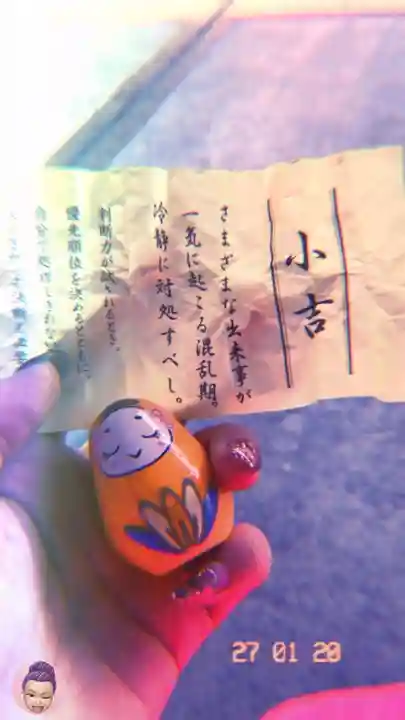 小吉
さまざまな出来事が
一気に起こる混乱期。
冷静に対処すべし。
判断力が試されるとき。
優先順位を決めるとともに、
27 01 20